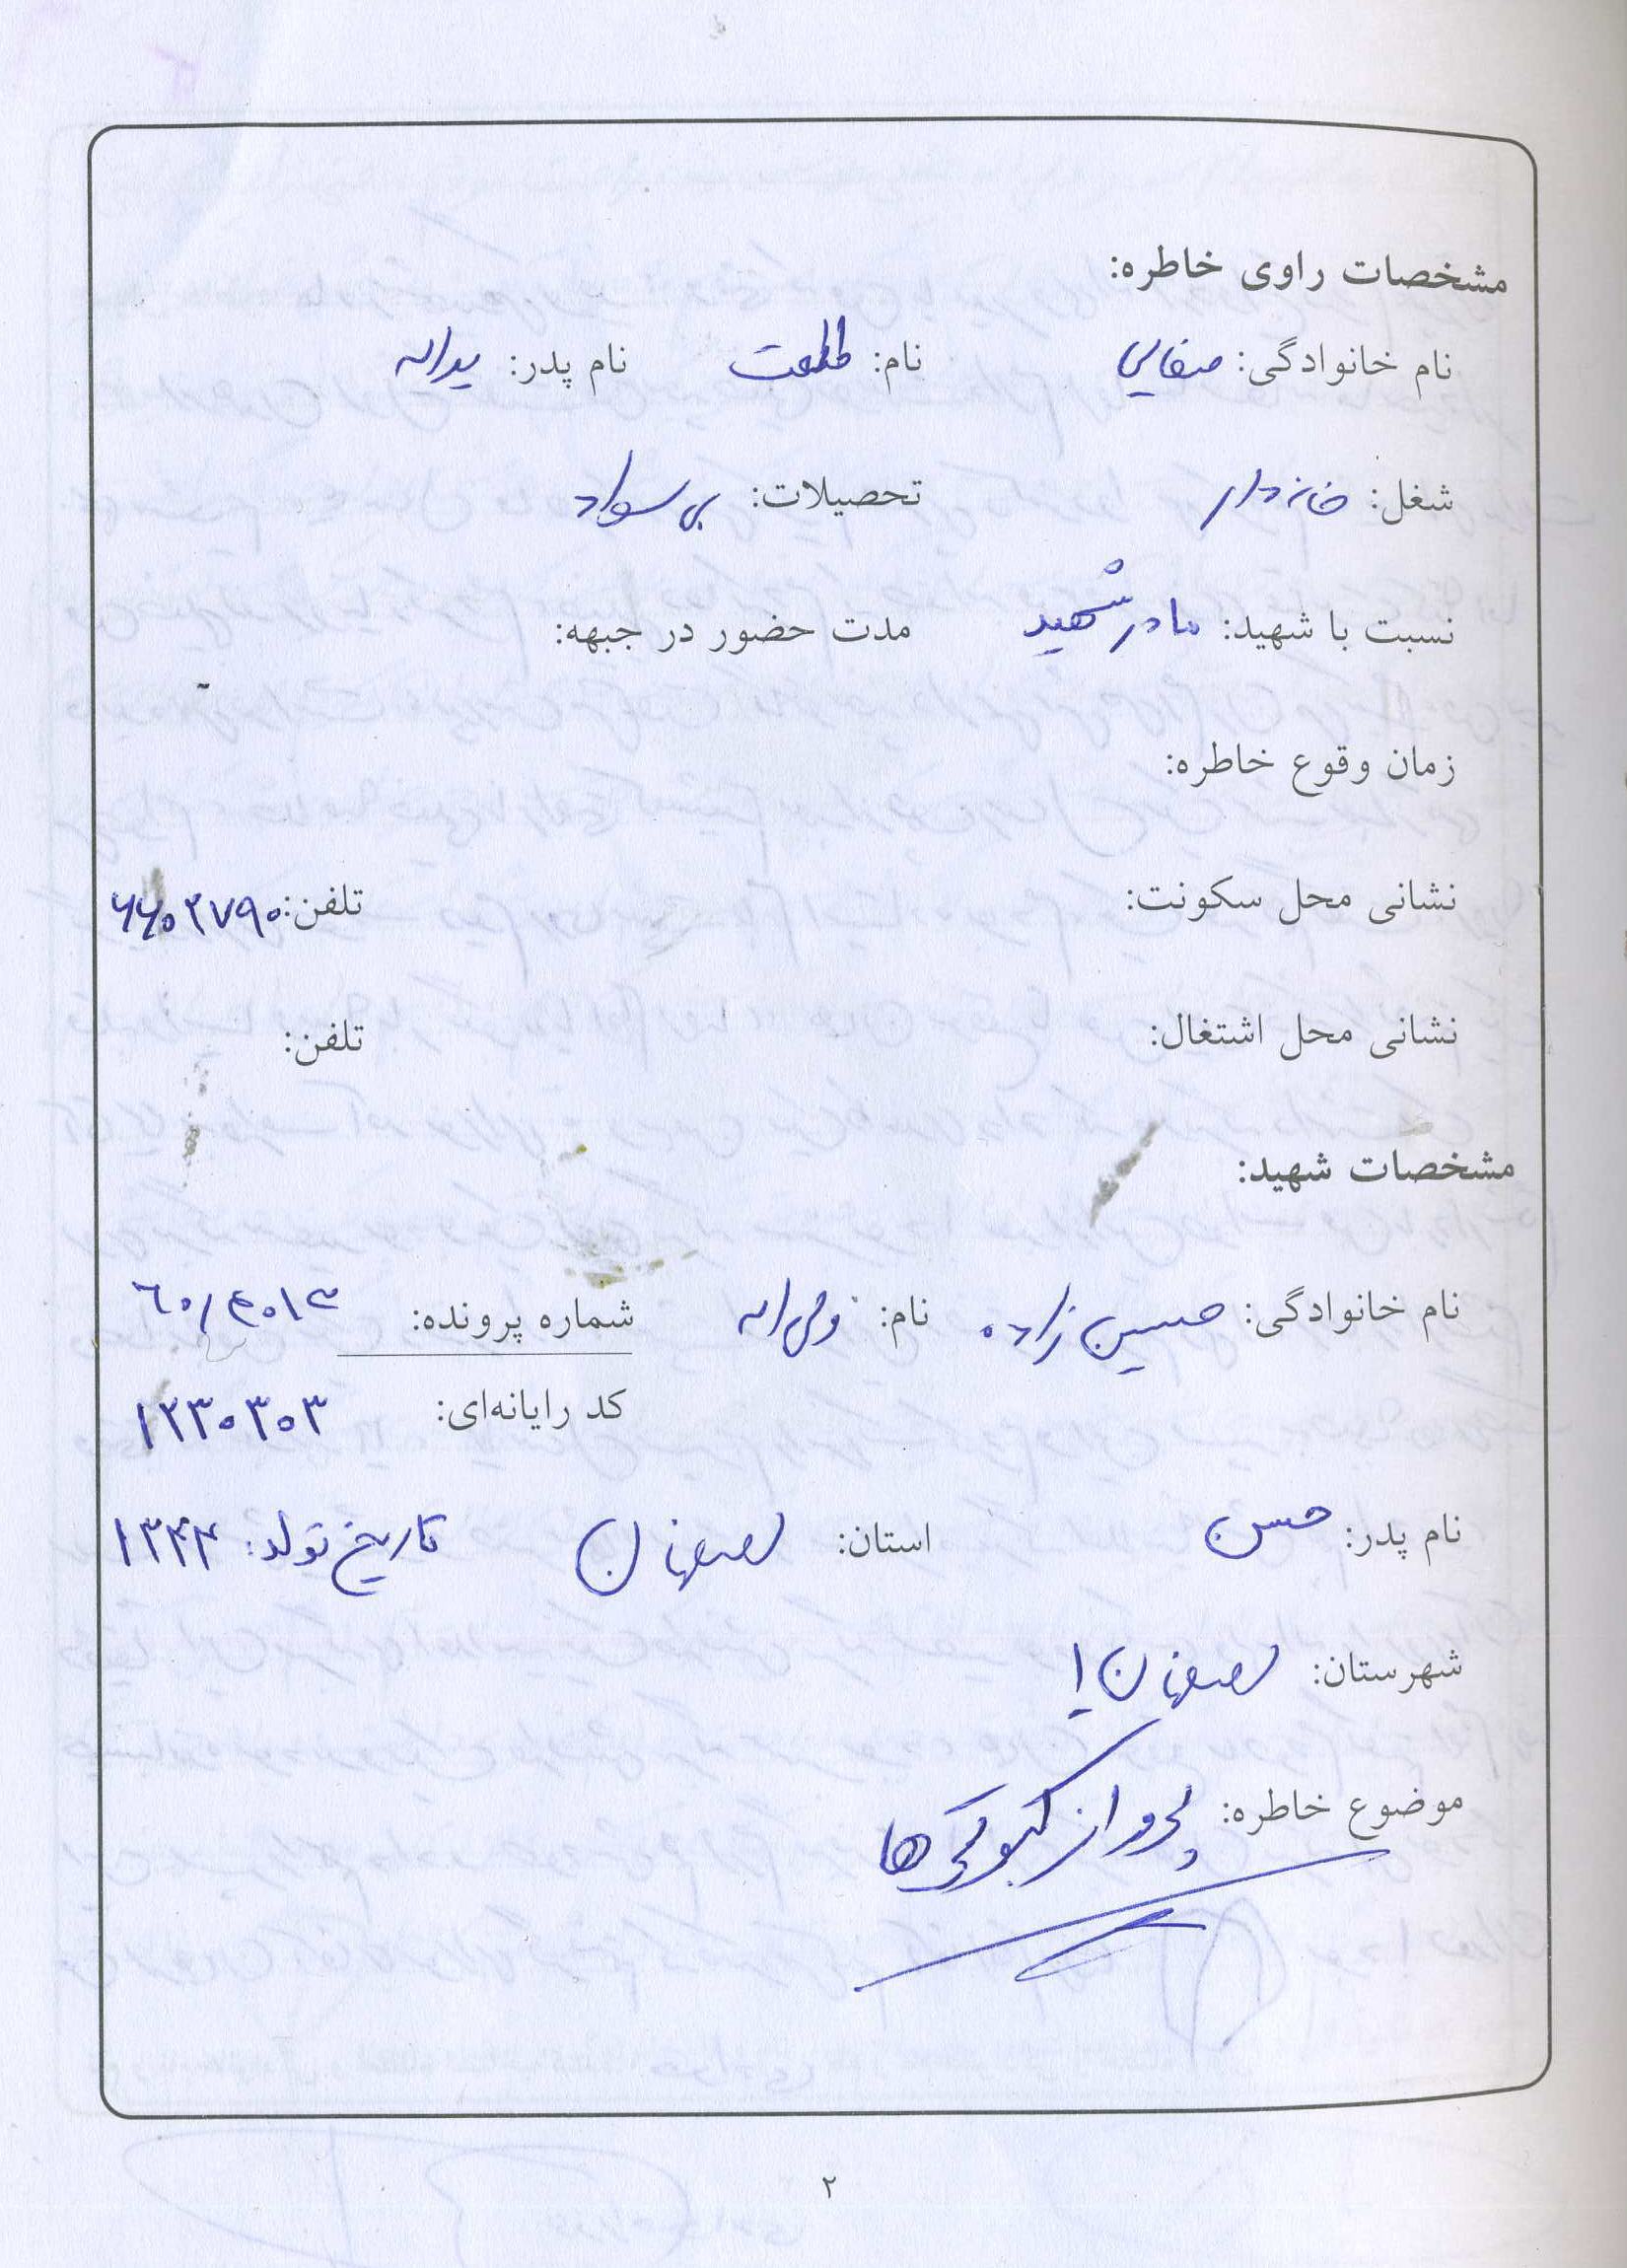 مشخصات راوی خاطره:
نام خانوادگی: صفایی نام: طلعت نام پدر: یداله
شغل: خانه دار تحصیلات: بی سواد
نسبت با شهید: مادر شهید مدت حضور در جبهه:
زمان وقوع خاطره:
نشانی محل سکونت: تلفن: ۶۶۰۲۷۹۰
نشانی محل اشتغال: تلفن:
مشخصات شهید:
نام خانوادگی: حسین زاده نام: ولی اله شماره پرونده: ۶۰/۴۰۱۳
کد رایانه‌ای: ۱۲۳۰۳۰۳
نام پدر: حسن استان: اصفهان تاریخ تولد: ۱۳۴۴
شهرستان: اصفهان ۱
موضوع خاطره: پرواز کبوترها
۲